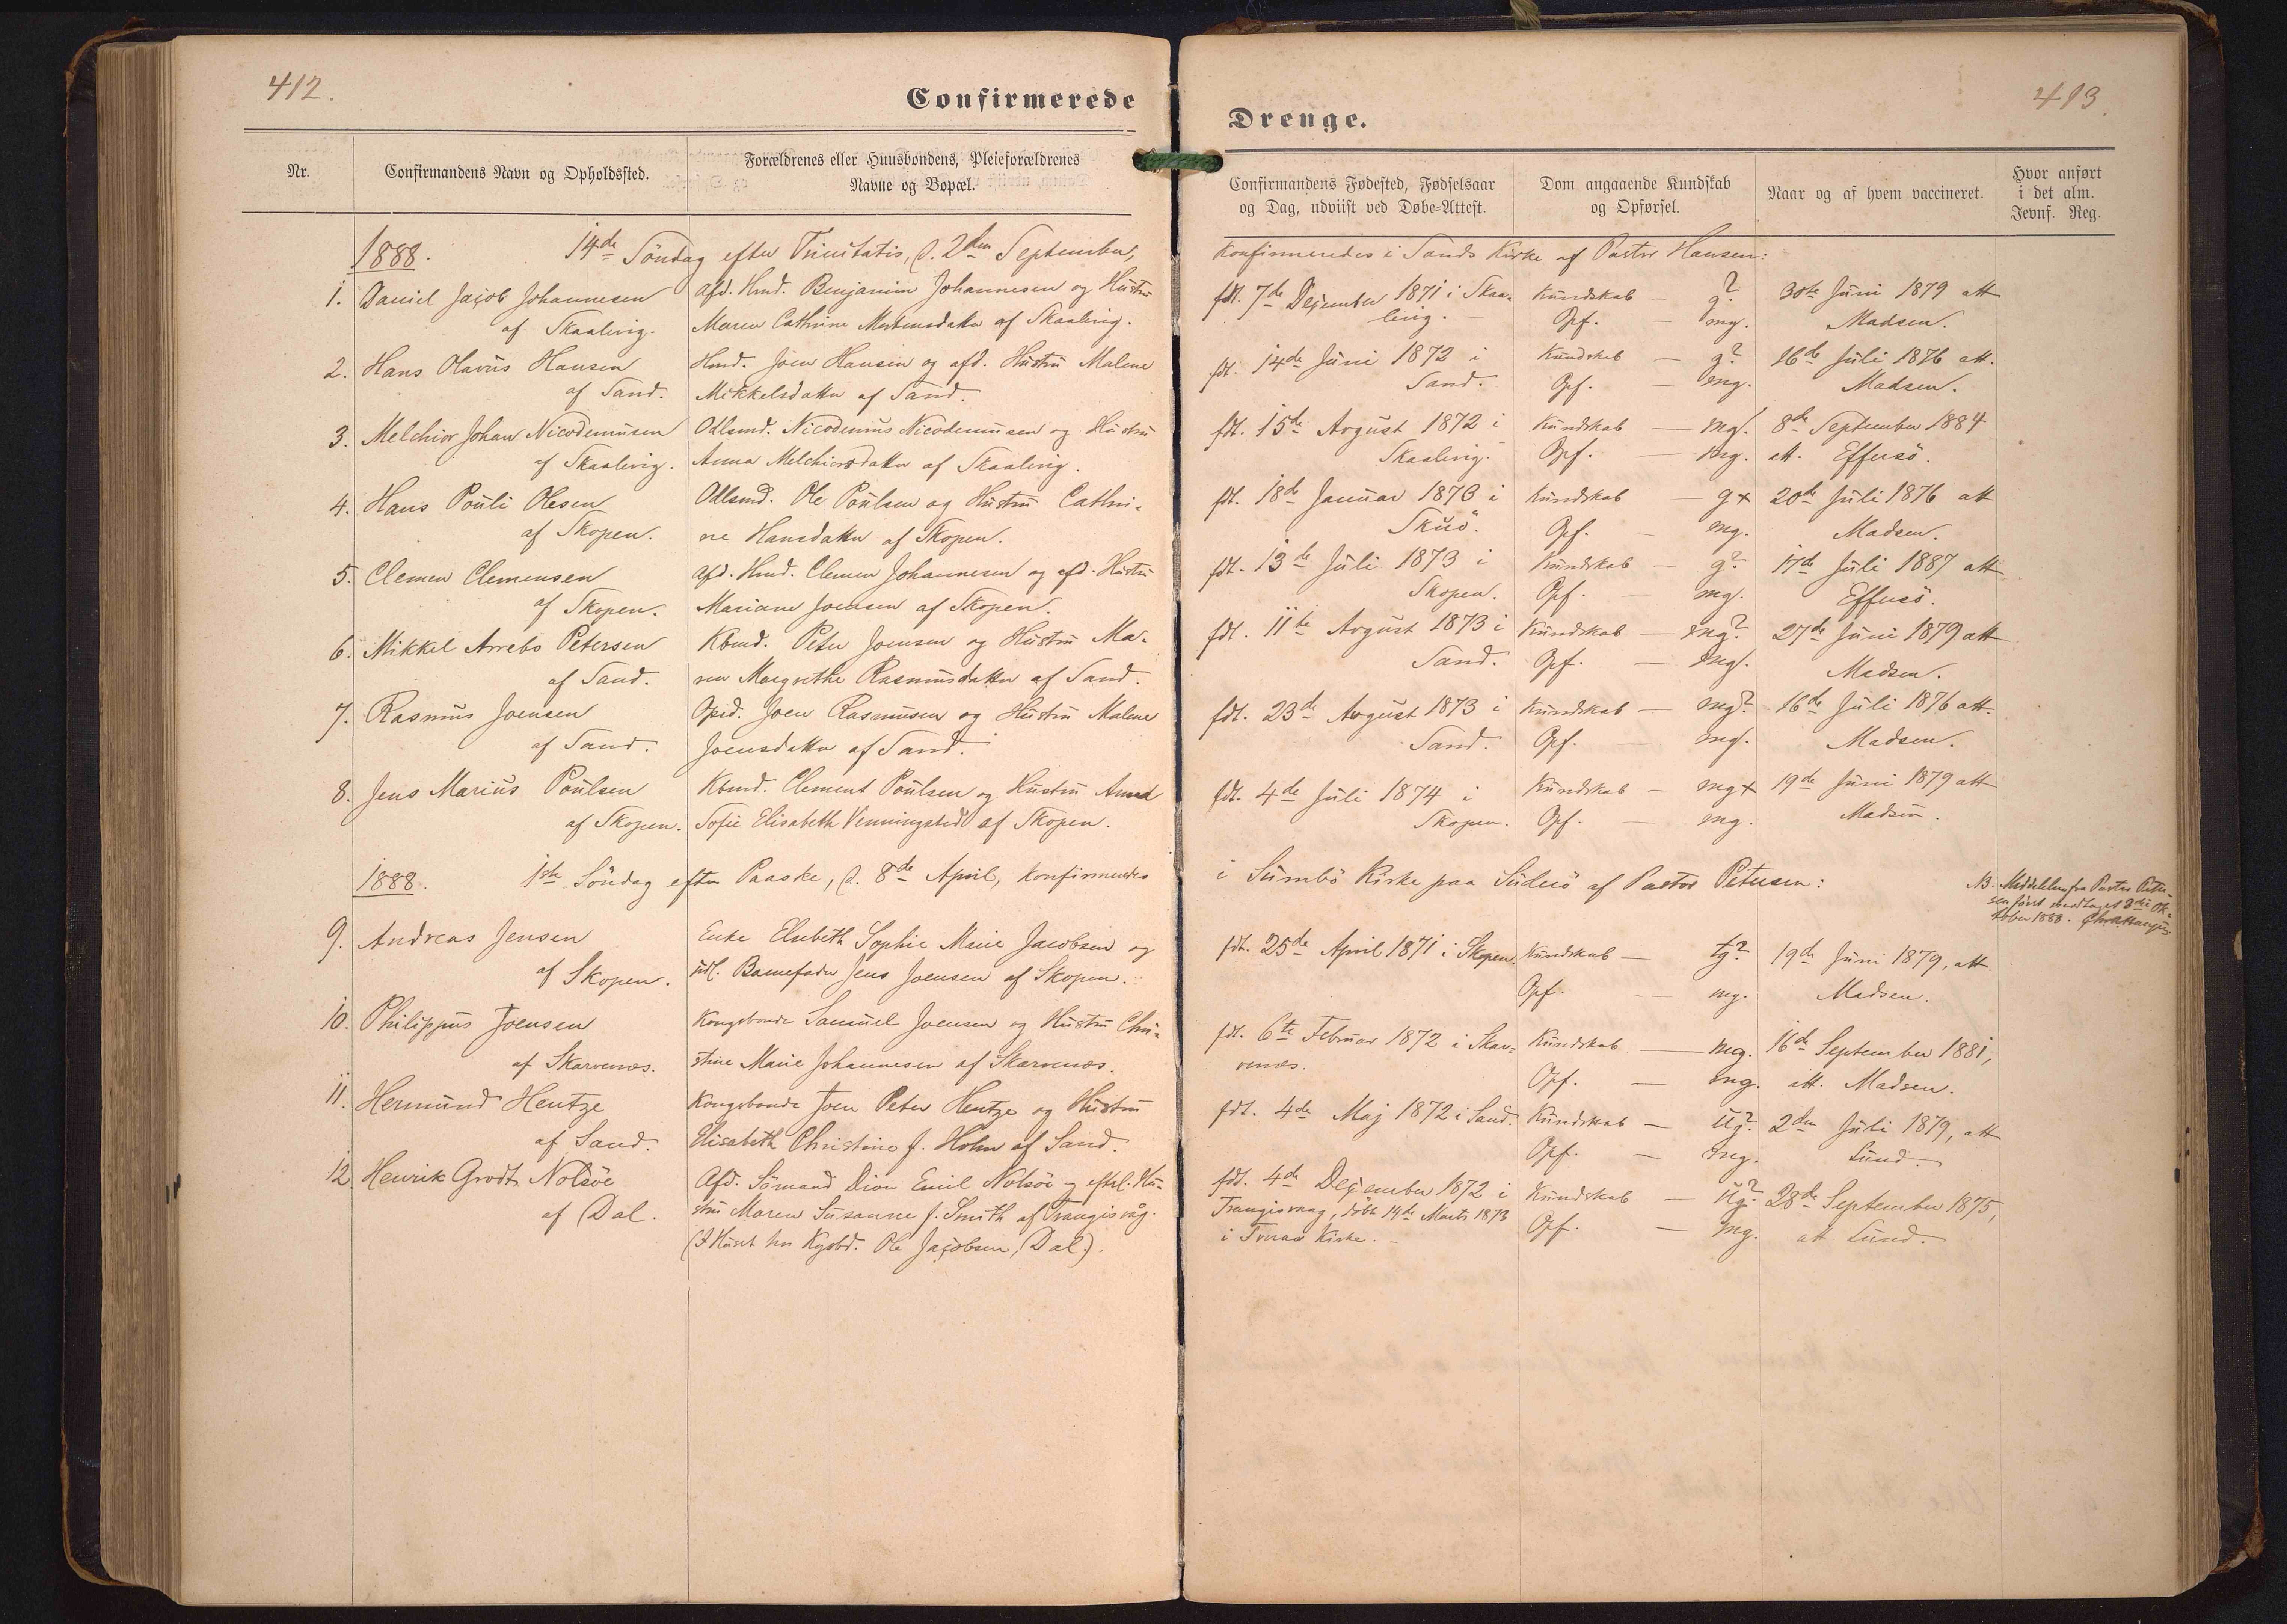 412.
Confirmerede
Nr.
Confirmandens Navn og Opholdssted.
Forældrenes eller Huusbondens, Pleieforældrenes
Navne og Bopæl.
1888. 14de Söndag efter Trinitatis, d. 2den September,
1. Daniel Jacob Johannesen
af Skaalevig.
Afd. Hmd. Benjamin Johannesen og Hustru
Maren Cathrine Mortensdatter af Skaalevig.
2. Hans Olavus Hansen
af Sand.
Hmd. Joen Hansen og afd. Hustru Malene
Mikkelsdatter af Sand.
3. Melchior Johan Nicodemusen
af Skaalevig.
Odlsmd. Nicodemus Nicodemusen og Hustru
Anna Melchiorsdatter af Skaalevig.
4. Hans Pouli Olesen
af Skopen.
Odlsmd. Ole Poulsen og Hustru Cathri-
ne Hansdatter af Skopen.
5. Clemen Clemensen
af Skopen.
Afd. Hmd. Clemen Johannesen og afd. Hustru
Mariane Joensen af Skopen.
6. Mikkel Arrebo Petersen
af Sand.
Kbmd. Peter Joensen og Hustru Ma-
ren Margrethe Rasmusdatter af Sand.
7. Rasmus Joensen
af Sand.
Opsd. Joen Rasmusen og Hustru Malene
Joensdatter af Sand.
8. Jens Marius Poulsen
af Skopen.
Kbmd. Clement Poulsen og Hustru Anna
Sofie Elisabeth Venningsted af Skopen.
1888. 1ste Söndag efter Paaske, d. 8de April, konfirmeredes
9. Andreas Jensen
af Skopen.
Enke Elsebeth Sophie Marie Jacobsen og
udl. Barnefader Jens Joensen af Skopen.
10. Philippus Joensen
af Skarvenæs.
Kongsbonde Samuel Joensen og Hustru Chri-
stine Marie Johannesen af Skarvenæs.
11. Hermund Hentze
af Sand.
Kongsbonde Joen Peter Hentze og Hustru
Elisabeth Christine f. Holm af Sand.
12. Henrik Grodt Nolsöe
af Dal.
Afd. Sömand Dion Emil Nolsöe og eftrl. Hu-
stru Maren Susanne f. Smith af Trangisvåg.
(I Huset hos Kgsbd. Ole Jacobsen, Dal).
413.
Drenge.
Confirmandens Fødested, Fødselsaar
og Dag, udviist ved Døbe-Attest.
Dom angaaende Kundskab
og Opførsel.
Naar og af hvem vaccineret.
Hvor anført
i det alm.
Jevnf. Reg.
konfirmeredes i Sands Kirke af Pastor Hansen:
fdt. 7de December 1871 i Skaa-
levig.
Kundskab — g?
Opf. — mg.
30te Juni 1879 att
Madsen.
fdt. 14de Juni 1872 i
Sand.
Kundskab — g?
Opf. — mg.
16de Juli 1876 att.
Madsen.
fdt. 15de August 1872 i
Skaalevig.
Kundskab — mg.
Opf. — mg.
8de September 1884
att. Effersö.
fdt. 18de Januar 1873 i
Skuö.
Kundskab — g+
Opf. — mg.
20de Juli 1876 att
Madsen.
fdt. 13de Juli 1873 i
Skopen.
Kundskab — g?
Opf. — mg.
17de Juli 1887 att
Effersö.
fdt. 11te August 1873 i
Sand.
Kundskab — mg?
Opf. — mg.
27de Juni 1879 att
Madsen.
fdt. 23de August 1873 i
Sand.
Kundskab — mg?
Opf. — mg.
16de Juli 1876 att.
Madsen.
fdt. 4de Juli 1874 i
Skopen.
Kundskab — mg+
Opf. — mg.
19de Juni 1879 att
Madsen.
i Sumbö Kirke paa Suderö af Pastor Petersen:
NB. Meddelelsen fra Pastor Peter-
sen först modtaget 3die Ok-
tober 1888.
fdt. 25de April 1871 i Skopen.
Kundskab — tg?
Opf. — mg.
19de Juni 1879, att
Madsen.
fdt. 6te Februar 1872 i Skar-
venæs.
Kundskab — mg.
Opf. — mg.
16de September 1881,
att. Madsen.
fdt. 4de Maj 1872 i Sand.
Kundskab — ug?
Opf. — mg.
2den Juli 1879, att
Lund.
fdt. 4de December 1872 i
Trangisvaag, döbt 14de Marts 1873
i Tveraa Kirke.
Kundskab — ug?
Opf. — mg.
28de September 1875,
att. Lund.